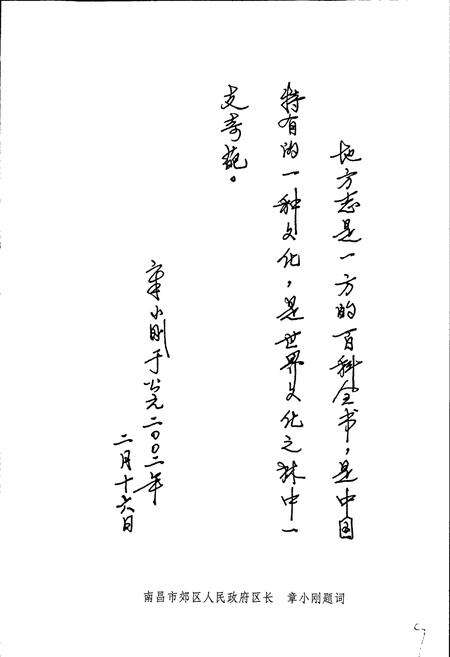 地方志是一方的百科全书，是中国
特有的一种文化，是世界文化之林中一
支奇葩。
章小刚于公元二〇〇二年
二月十六日
南昌市郊区人民政府区长 章小刚题词